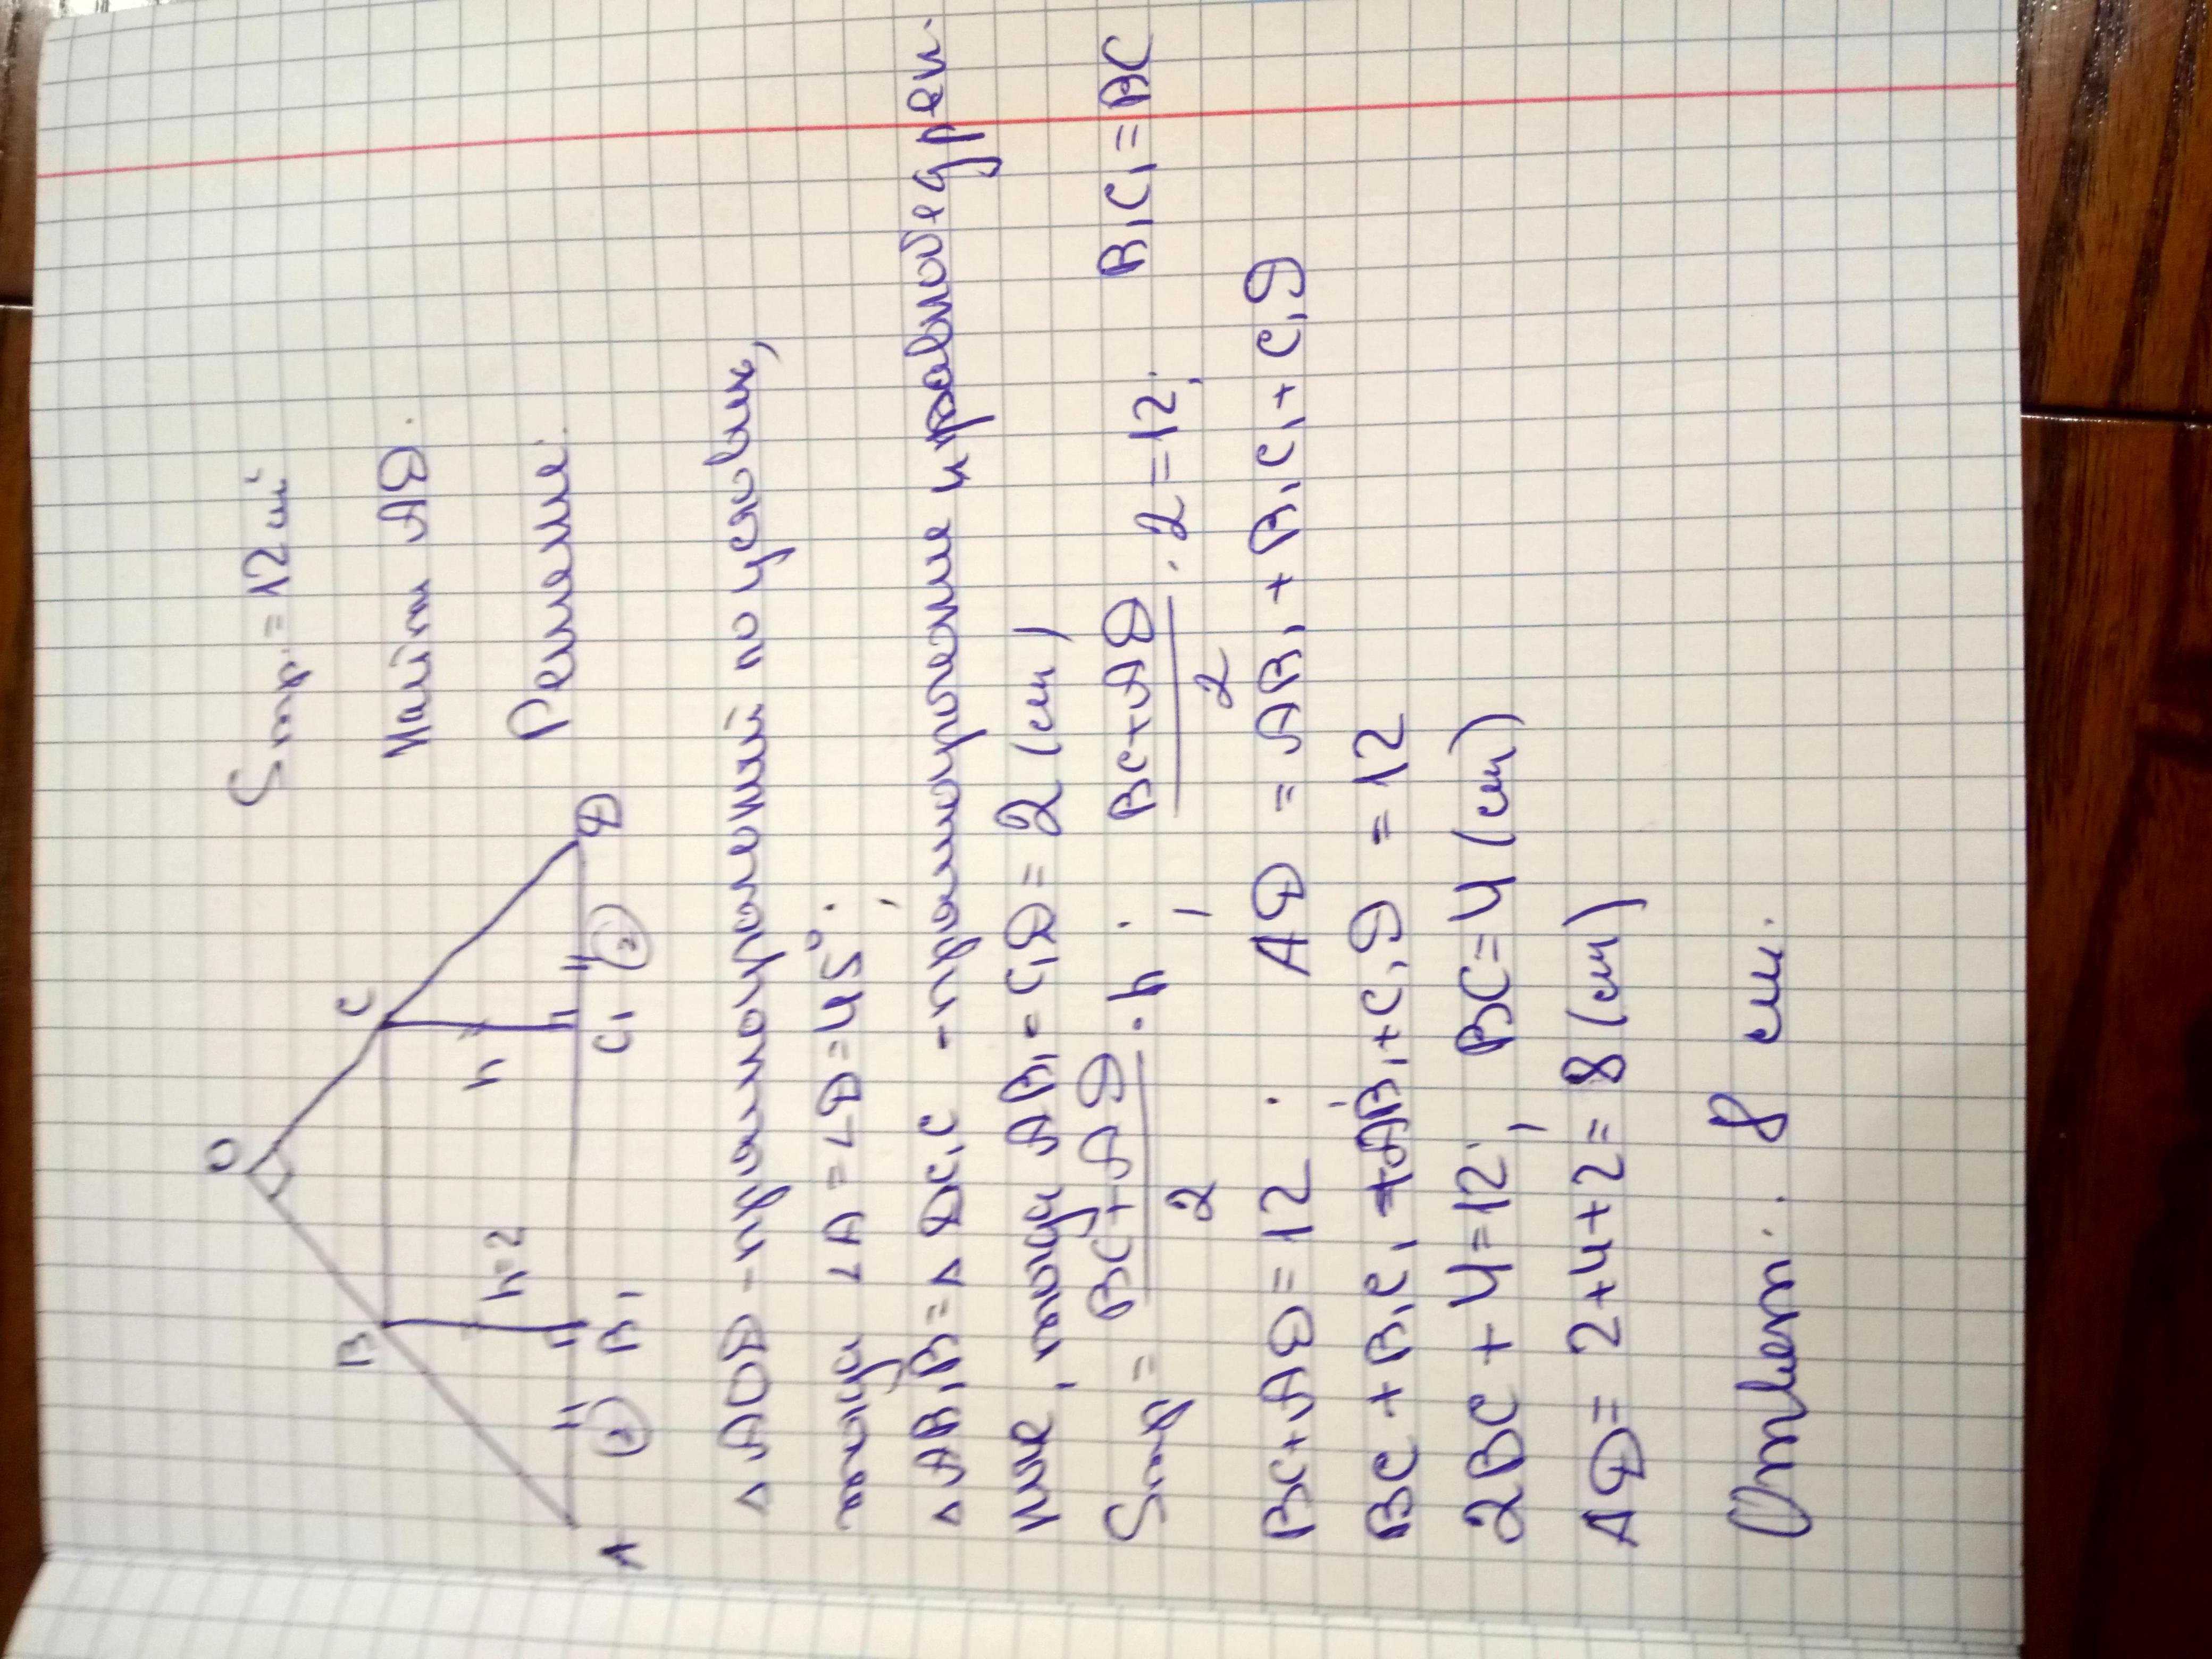 O
B
C
h=2
h
A
2
B₁
C₁
2
D
Sтр. = 12 см²
Найти AD.
Решение:
△ AOD - прямоугольный по условию,
тогда ∠A = ∠D = 45°;
△ AB₁B = △ DC₁C - прямоугольные и равнобедрен-
ные, тогда AB₁ = C₁D = 2 (см)
Sтр = (BC + AD)/2 · h ; (BC + AD)/2 · 2 = 12; B₁C₁ = BC
BC + AD = 12 ; AD = AB₁ + B₁C₁ + C₁D
BC + B₁C₁ + AB₁ + C₁D = 12
2BC + 4 = 12; BC = 4 (см)
AD = 2 + 4 + 2 = 8 (см)
Ответ: 8 см.